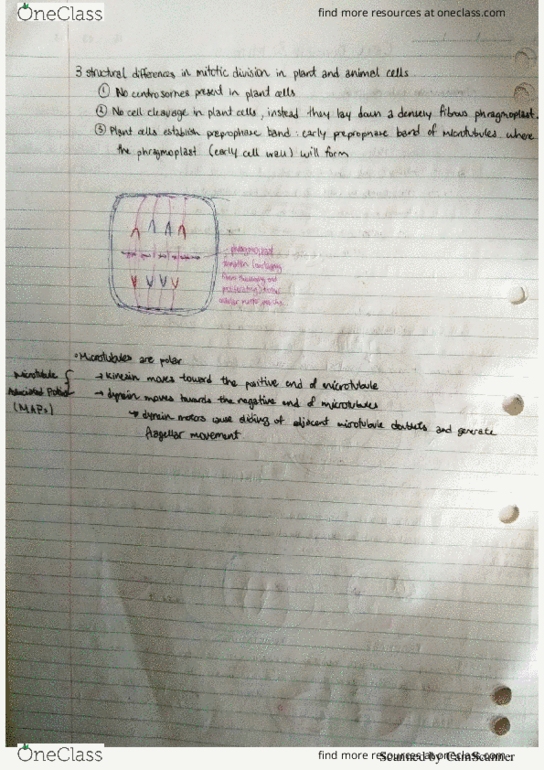 OneClass
find more resources at oneclass.com
3 structural differences in mitotic division in plant and animal cells
① No centrosomes present in plant cells
② No cell cleavage in plant cells, instead they lay down a densely fibrous phragmoplast.
③ Plant cells establish preprophase band: early preprophase band of microtubules where
the phragmoplast (early cell wall) will form
phragmoplast
•Microtubules are polar
→ kinesin moves toward the positive end of microtubule
→ dynein moves towards the negative end of microtubules
↳ dynein motors cause sliding of adjacent microtubule doublets and generate
flagellar movement
Microtubule
Associated Protein
(MAPs)
OneClass
find more resources at oneclass.com
Scanned by CamScanner